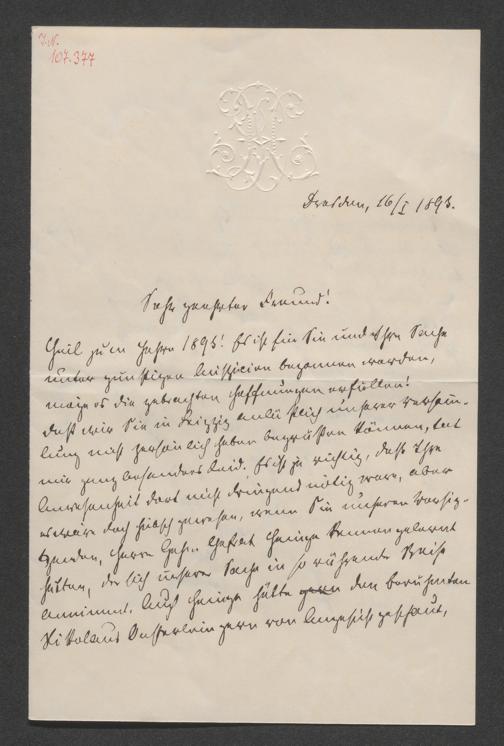 I.N.
107.377
Dresden, 16/I 1893.
Sehr geehrter Freund!
Heil zum Jahre 1893! Es ist für Sie und Ihre Sache
unter günstigen Auspicien begonnen worden,
möge es die gebrachten Hoffnungen erfüllen!
Daß wir Sie in Leipzig anläßlich unserer Versamm-
lung nicht persönlich haben begrüßen können, tat
mir ganz besonders leid. Es ist ja richtig, daß Ihre
Anwesenheit dort nicht dringend nötig war, aber
es wäre doch hübsch gewesen, wenn Sie unseren Vorsitz-
enden, Herrn Hofrat kennen gelernt
hätten, der sich unserer Sache in so rührender Weise
annimmt. Auch hätte gern den berühmten
Nikolaus Oesterlein gern von Angesicht geschaut,